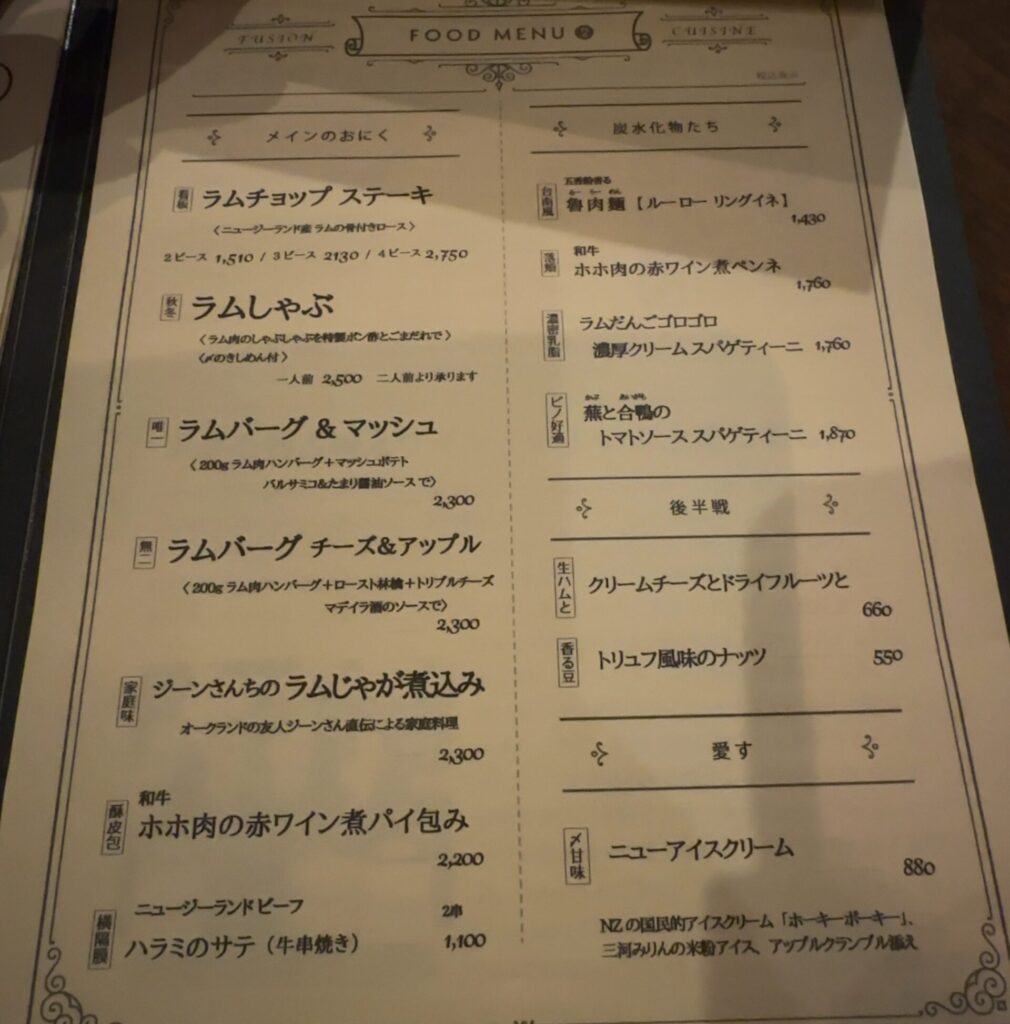 FUSION
FOOD MENU 2
CUISINE
税込表示
メインのおにく
看板 ラムチョップ ステーキ
〈ニュージーランド産 ラムの骨付きロース〉
2ピース 1,510 / 3ピース 2130 / 4ピース 2,750
秋冬 ラムしゃぶ
〈ラム肉のしゃぶしゃぶを特製ポン酢とごまだれで〉
〈〆のきしめん付〉
一人前 2,500 二人前より承ります
唯一 ラムバーグ & マッシュ
〈200g ラム肉ハンバーグ+マッシュポテト
バルサミコ&たまり醤油ソースで〉
2,300
無二 ラムバーグ チーズ&アップル
〈200g ラム肉ハンバーグ+ロースト林檎+トリプルチーズ
マデイラ酒のソースで〉
2,300
家庭味 ジーンさんちの ラムじゃが煮込み
オークランドの友人ジーンさん直伝による家庭料理
2,300
和牛
酥皮包 ホホ肉の赤ワイン煮パイ包み
2,200
ニュージーランドビーフ 2串
横隔膜 ハラミのサテ（牛串焼き） 1,100
炭水化物たち
五香粉香る
台南風 魯肉麺【ルーロー リングイネ】
1,430
和牛
ホホ肉の赤ワイン煮ペンネ
1,760
濃密乳脂 ラムだんごゴロゴロ
濃厚クリーム スパゲティーニ 1,760
ピノ好適 蕪と合鴨の
トマトソース スパゲティーニ 1,870
後半戦
生ハムと クリームチーズとドライフルーツと
660
香る豆 トリュフ風味のナッツ 550
愛す
〆甘味 ニューアイスクリーム
880
NZの国民的アイスクリーム「ホーキーポーキー」、
三河みりんの米粉アイス、アップルクランブル添え